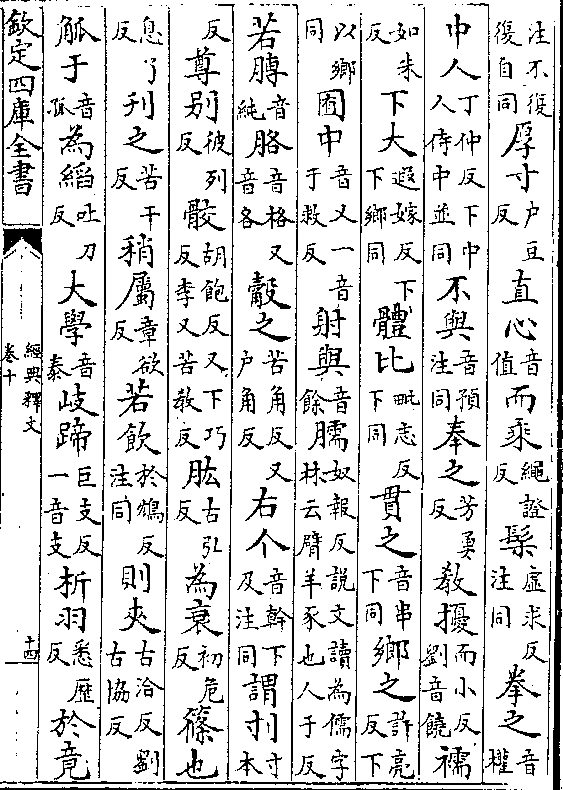 注不復復自同厚寸户豆反直心音值而乘繩證反髤虛求反注同拳之音權
中人丁仲反下中人侍中並同不與音預注同奉之芳勇反教擾而小反劉音饒襦
如朱反下大遐嫁反下下鄉同體比毗志反下同貫之音串下同鄉之許亮反下
以鄉同囿中音又一音于救反射與音餘臑奴報反說文讀為儒字林云臂羊豕也人于反
若膊音純胳音格又音各觳之苦角反又户角反右个音幹下及注同謂刌寸本
反尊别彼列反骹胡飽反又下巧反李又苦教反肱古弘反為衰初危反篠也
息了反刊之苦干反稍屬章欲反若飲於鴆反注同則夾古洽反劉古協反
觚于音孤為縚吐刀反大學音泰岐蹄巨支反一音支析羽悉歷反於竟
欽定四庫全書
經典釋文
卷十
十四